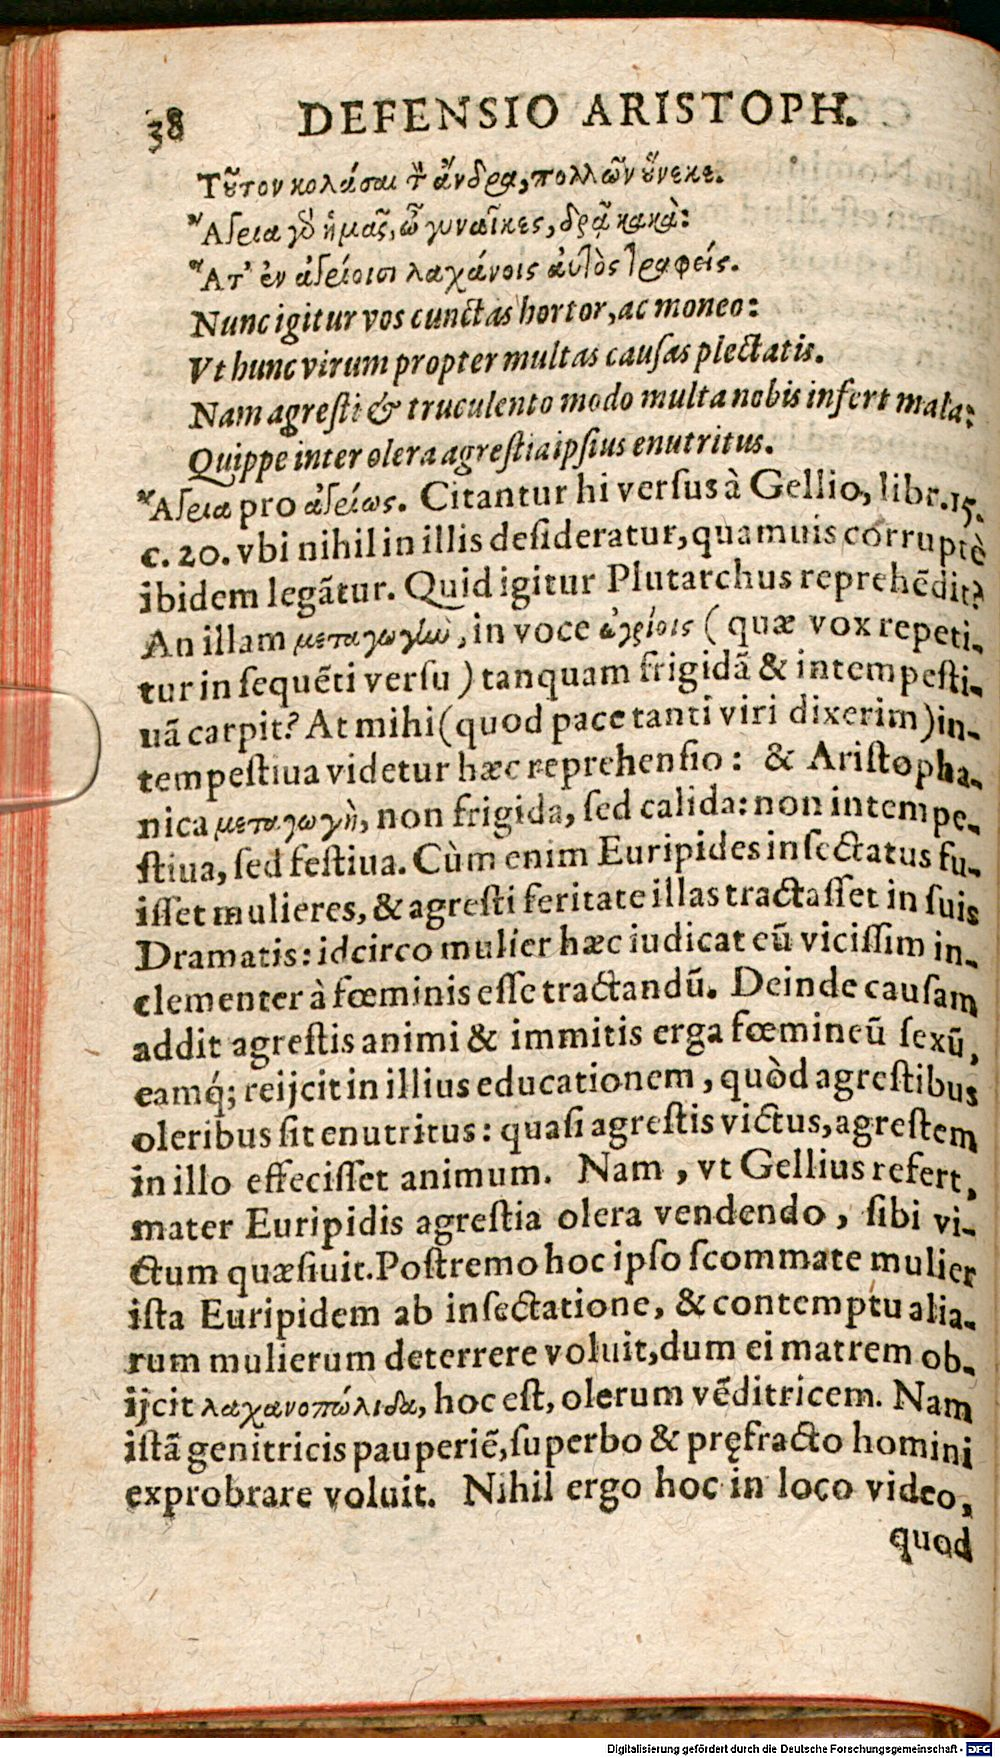 38 DEFENSIO ARISTOPH.
Τȣ͂τον κολάσαι τ̀ ἄνδρα, πολλῶν ȣ̔́νεκε.
Ἄγρια γὸ ἡμᾶς, ὦ γυναῖκες, δρᾷ κακὰ:
Ἅτ’ ἐν ἀγρίοισι λαχάνοις αὐτὸς τραφείς.
Nunc igitur vos cunctas hortor, ac moneo:
Vt hunc virum propter multas causas plectatis.
Nam agresti & truculento modo multa nobis infert mala:
Quippe inter olera agrestia ipsius enutritus.
Ἄγρια pro ἀγρίως. Citantur hi versus à Gellio, libr. 15.
c. 20. vbi nihil in illis desideratur, quamuis corruptè
ibidem legãtur. Quid igitur Plutarchus reprehẽdit?
An illam μεταγωγὴν, in voce ἀγρίοις ( quæ vox repeti-
tur in sequẽti versu ) tanquam frigidã & intempesti-
uã carpit? At mihi (quod pace tanti viri dixerim) in-
tempestiua videtur hæc reprehensio: & Aristopha-
nica μεταγωγὴ, non frigida, sed calida: non intempe-
stiua, sed festiua. Cùm enim Euripides insectatus fu-
isset mulieres, & agresti feritate illas tractasset in suis
Dramatis: idcirco mulier hæc iudicat eũ vicissim in-
clementer à fœminis esse tractandũ. Deinde causam
addit agrestis animi & immitis erga fœmineũ sexũ,
eamq́; reijcit in illius educationem, quòd agrestibus
oleribus sit enutritus: quasi agrestis victus, agrestem
in illo effecisset animum. Nam, vt Gellius refert,
mater Euripidis agrestia olera vendendo, sibi vi-
ctum quæsiuit. Postremo hoc ipso scommate mulier
ista Euripidem ab insectatione, & contemptu alia-
rum mulierum deterrere voluit, dum ei matrem ob-
ijcit λαχανοπώλιδα, hoc est, olerum vẽditricem. Nam
istã genitricis pauperiẽ, superbo & pręfracto homini
exprobrare voluit. Nihil ergo hoc in loco video,
quod
Digitalisierung gefördert durch die Deutsche Forschungsgemeinschaft - DFG